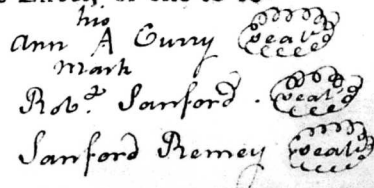 his
Ann A Curry Seal'd
mark
Rob.t Sanford . Seal'd
Sanford Remey Seal'd